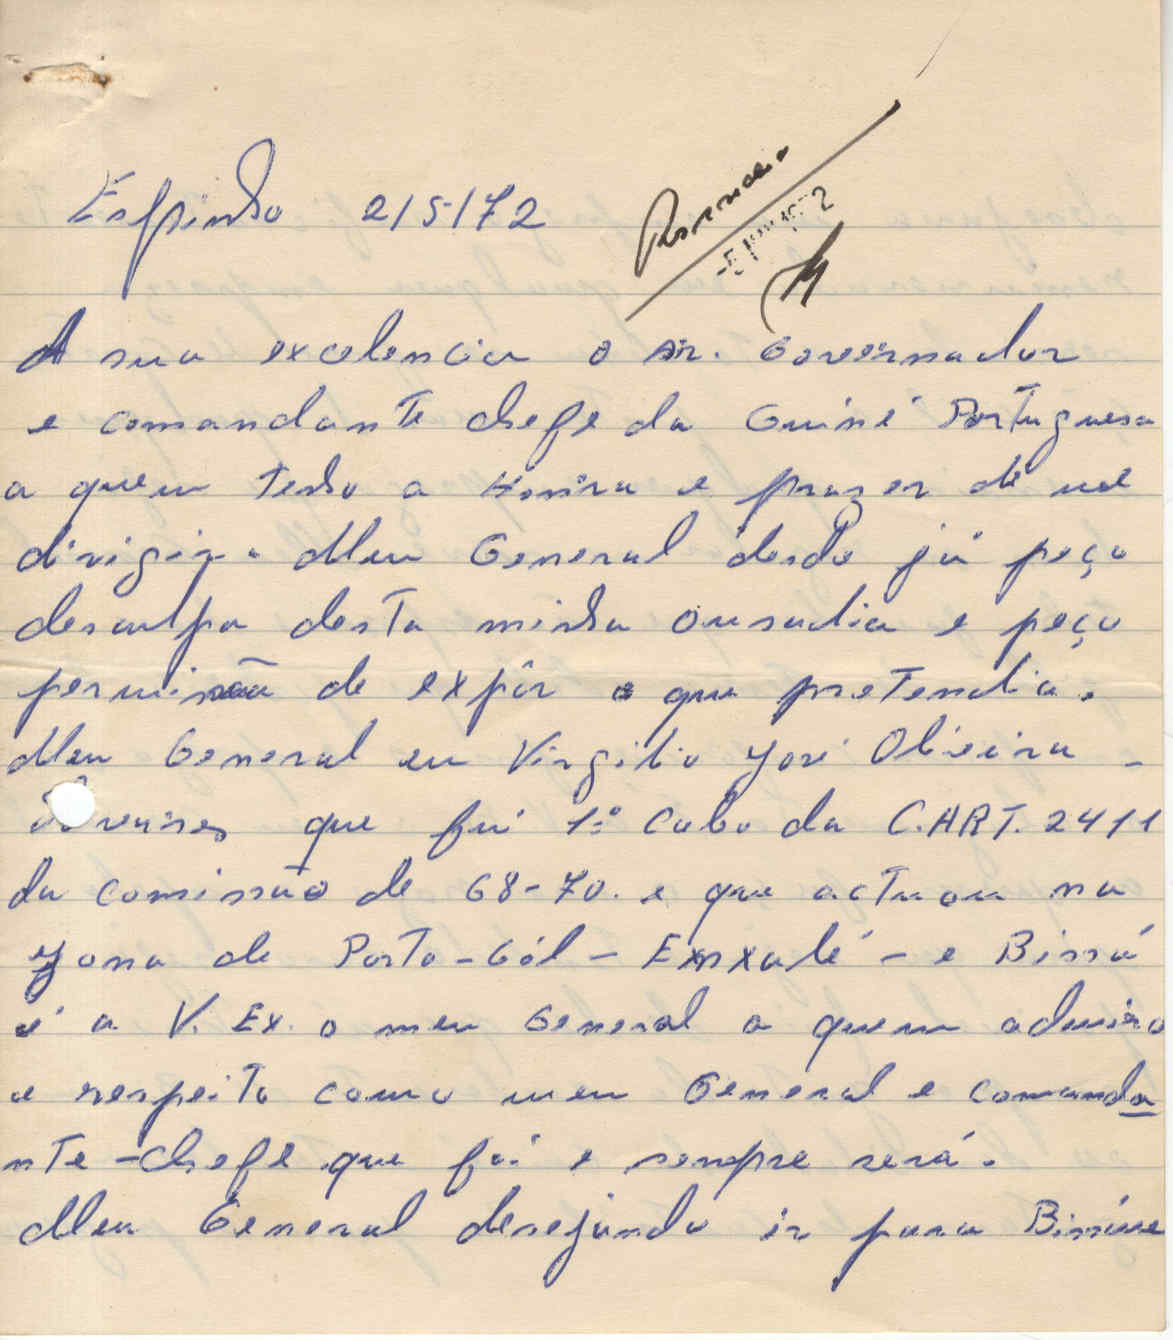 Espinho 2/5/72
-5 MAI 1972
A sua excelencia o Sr. Governador
e comandante chefe da Guiné Portuguesa
a quem tenho a Honra e prazer de me
dirigir. Meu General desde já peço
desculpa desta minha ousadia e peço
permissão de expôr o que pretendia.
Meu General eu Virgilio José Oliveira -
que fui 1º Cabo da C.ART. 2411
da comissão de 68-70. e que actuou na
zona de Porto-Gól - Enxalé - e Bissá
é a V. Ex. o meu General a quem admiro
e respeito como meu General e comanda
nte-chefe que foi e sempre será.
Meu General desejando ir para Bissau